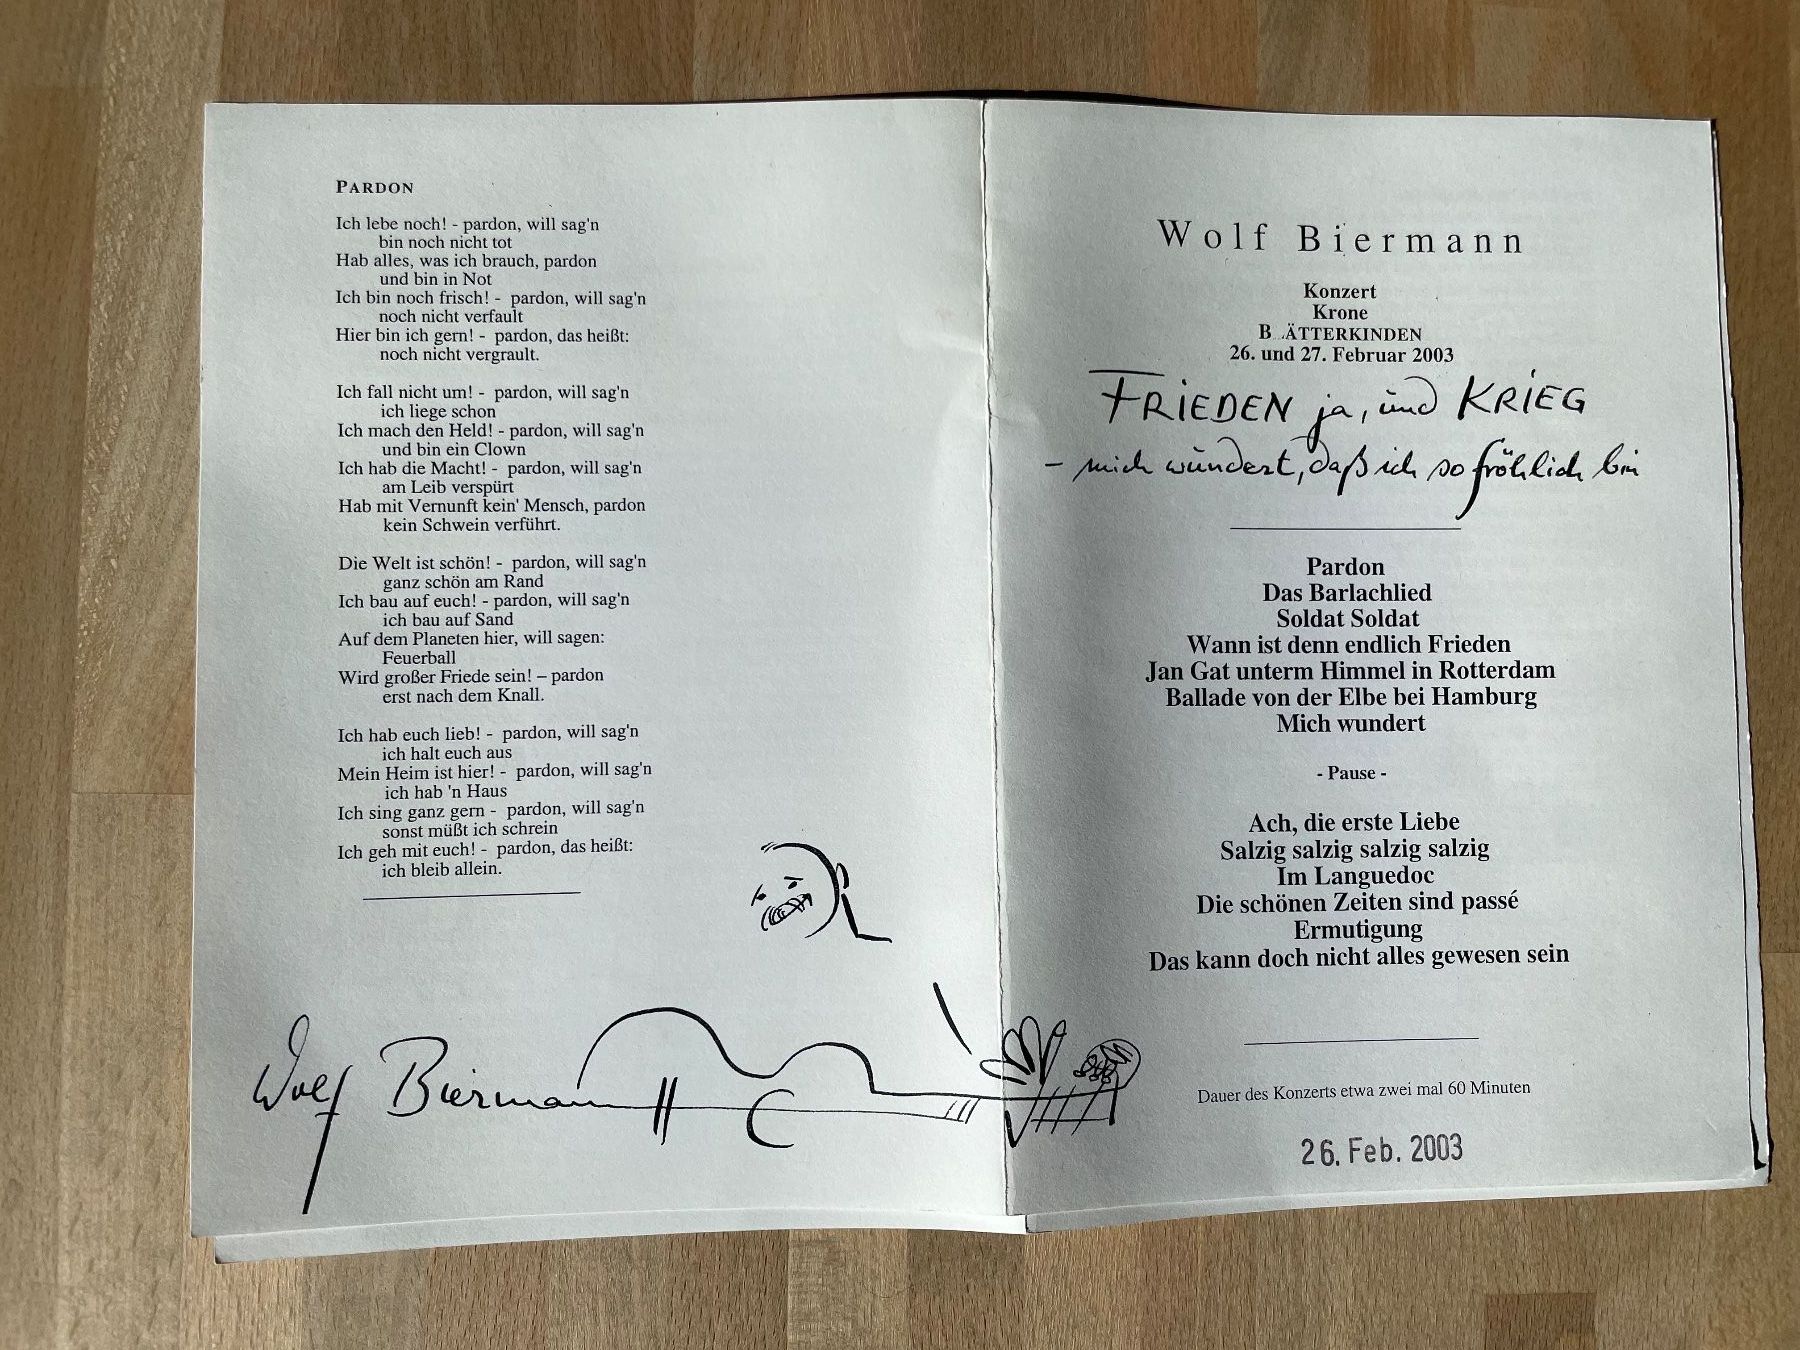 PARDON
Ich lebe noch! - pardon, will sag'n
bin noch nicht tot
Hab alles, was ich brauch, pardon
und bin in Not
Ich bin noch frisch! - pardon, will sag'n
noch nicht verfault
Hier bin ich gern! - pardon, das heißt:
noch nicht vergrault.
Ich fall nicht um! - pardon, will sag'n
ich liege schon
Ich mach den Held! - pardon, will sag'n
und bin ein Clown
Ich hab die Macht! - pardon, will sag'n
am Leib verspürt
Hab mit Vernunft kein' Mensch, pardon
kein Schwein verführt.
Die Welt ist schön! - pardon, will sag'n
ganz schön am Rand
Ich bau auf euch! - pardon, will sag'n
ich bau auf Sand
Auf dem Planeten hier, will sagen:
Feuerball
Wird großer Friede sein! – pardon
erst nach dem Knall.
Ich hab euch lieb! - pardon, will sag'n
ich halt euch aus
Mein Heim ist hier! - pardon, will sag'n
ich hab 'n Haus
Ich sing ganz gern - pardon, will sag'n
sonst müßt ich schrein
Ich geh mit euch! - pardon, das heißt:
ich bleib allein.
Wolf Biermann
Wolf Biermann
Konzert
Krone
B ÄTTERKINDEN
26. und 27. Februar 2003
FRIEDEN ja, und KRIEG
- mich wundert, daß ich so fröhlich bin
Pardon
Das Barlachlied
Soldat Soldat
Wann ist denn endlich Frieden
Jan Gat unterm Himmel in Rotterdam
Ballade von der Elbe bei Hamburg
Mich wundert
- Pause -
Ach, die erste Liebe
Salzig salzig salzig salzig
Im Languedoc
Die schönen Zeiten sind passé
Ermutigung
Das kann doch nicht alles gewesen sein
Dauer des Konzerts etwa zwei mal 60 Minuten
26. Feb. 2003